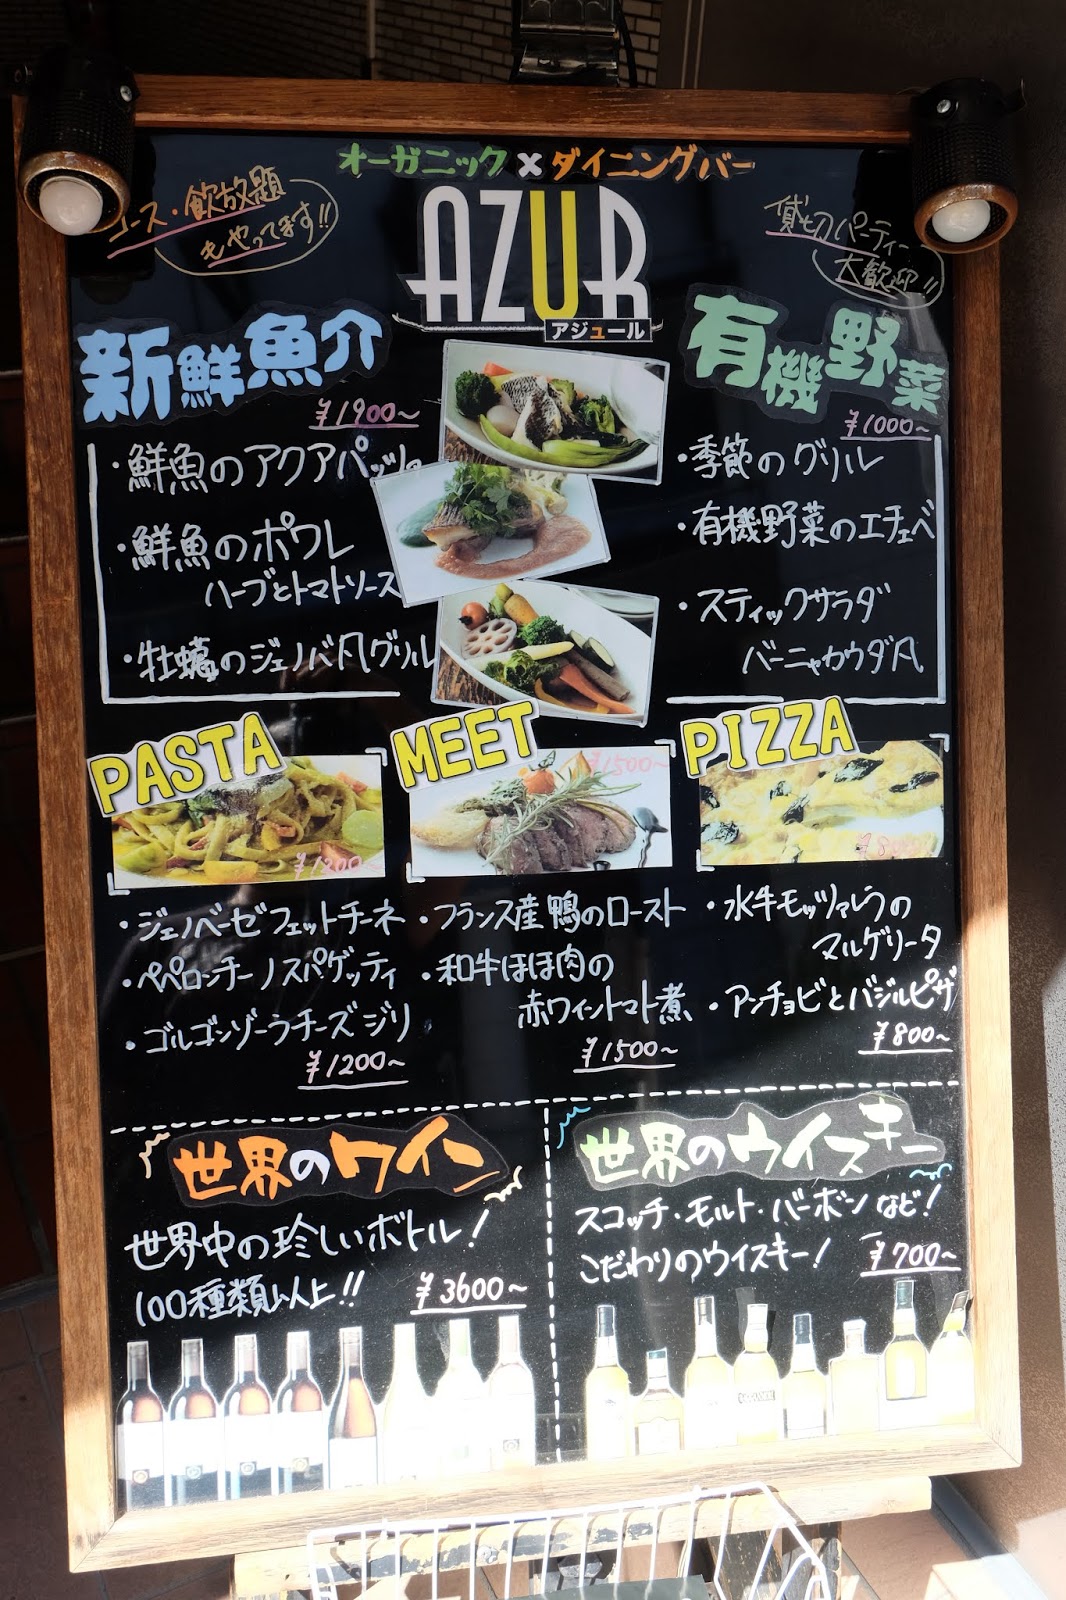 オーガニック×ダイニングバー
AZUR
アジュール
コース・飲放題
もやってます!!
貸切パーティー
大歓迎!!
新鮮魚介
¥1900~
・鮮魚のアクアパッツァ
・鮮魚のポワレ
ハーブとトマトソース
・牡蠣のジェノバ風グリル
有機野菜
¥1000~
・季節のグリル
・有機野菜のエチュベ
・スティックサラダ
バーニャカウダ風
PASTA
¥1200~
・ジェノベーゼフェットチーネ
・ペペロンチーノスパゲッティ
・ゴルゴンゾーラチーズジリ
¥1200~
MEET
¥1500~
・フランス産鴨のロースト
・和牛ほほ肉の
赤ワイントマト煮
¥1500~
PIZZA
・水牛モッツァレラの
マルゲリータ
・アンチョビとバジルピザ
¥800~
世界のワイン
世界中の珍しいボトル!
100種類以上!!
¥3600~
世界のウイスキー
スコッチ・モルト・バーボンなど!
こだわりのウイスキー!
¥700~